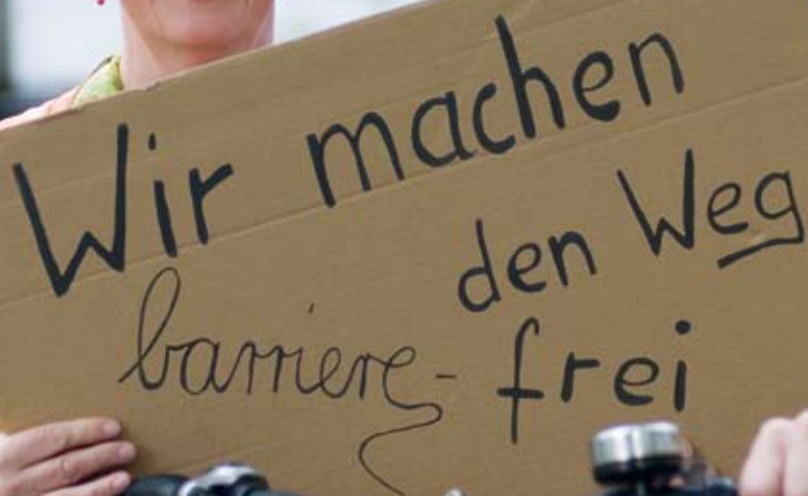 Wir machen
den Weg
barriere-frei